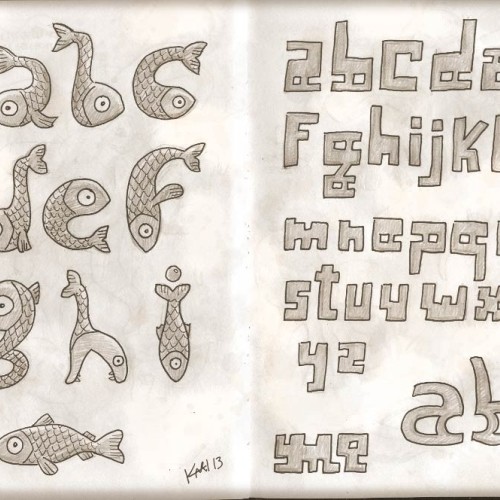 a b c
d e f
g h i
13
abcde
Fghijkl
mnopqr
stuvwx
yz
ab